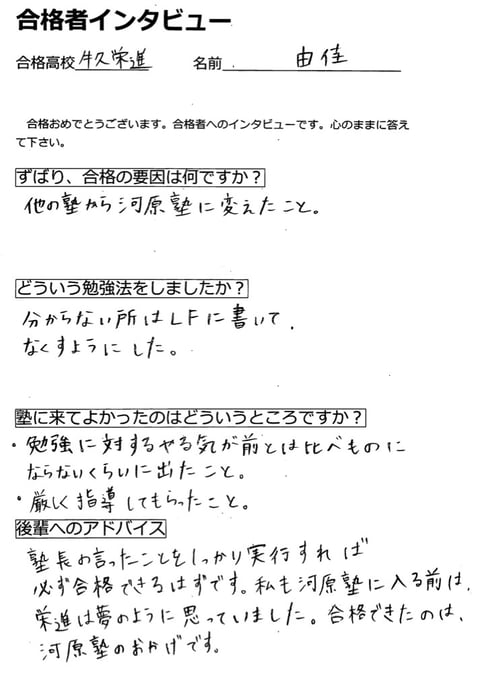 合格者インタビュー
合格高校 牛久栄進 名前 由佳
合格おめでとうございます。合格者へのインタビューです。心のままに答え
て下さい。
ずばり、合格の要因は何ですか？
他の塾から河原塾に変えたこと。
どういう勉強法をしましたか？
分からない所はLFに書いて、
なくすようにした。
塾に来てよかったのはどういうところですか？
・勉強に対するやる気が前とは比べものに
ならないくらいに出たこと。
・厳しく指導してもらったこと。
後輩へのアドバイス
塾長の言ったことをしっかり実行すれば
必ず合格できるはずです。私も河原塾に入る前は、
栄進は夢のように思っていました。合格できたのは、
河原塾のおかげです。